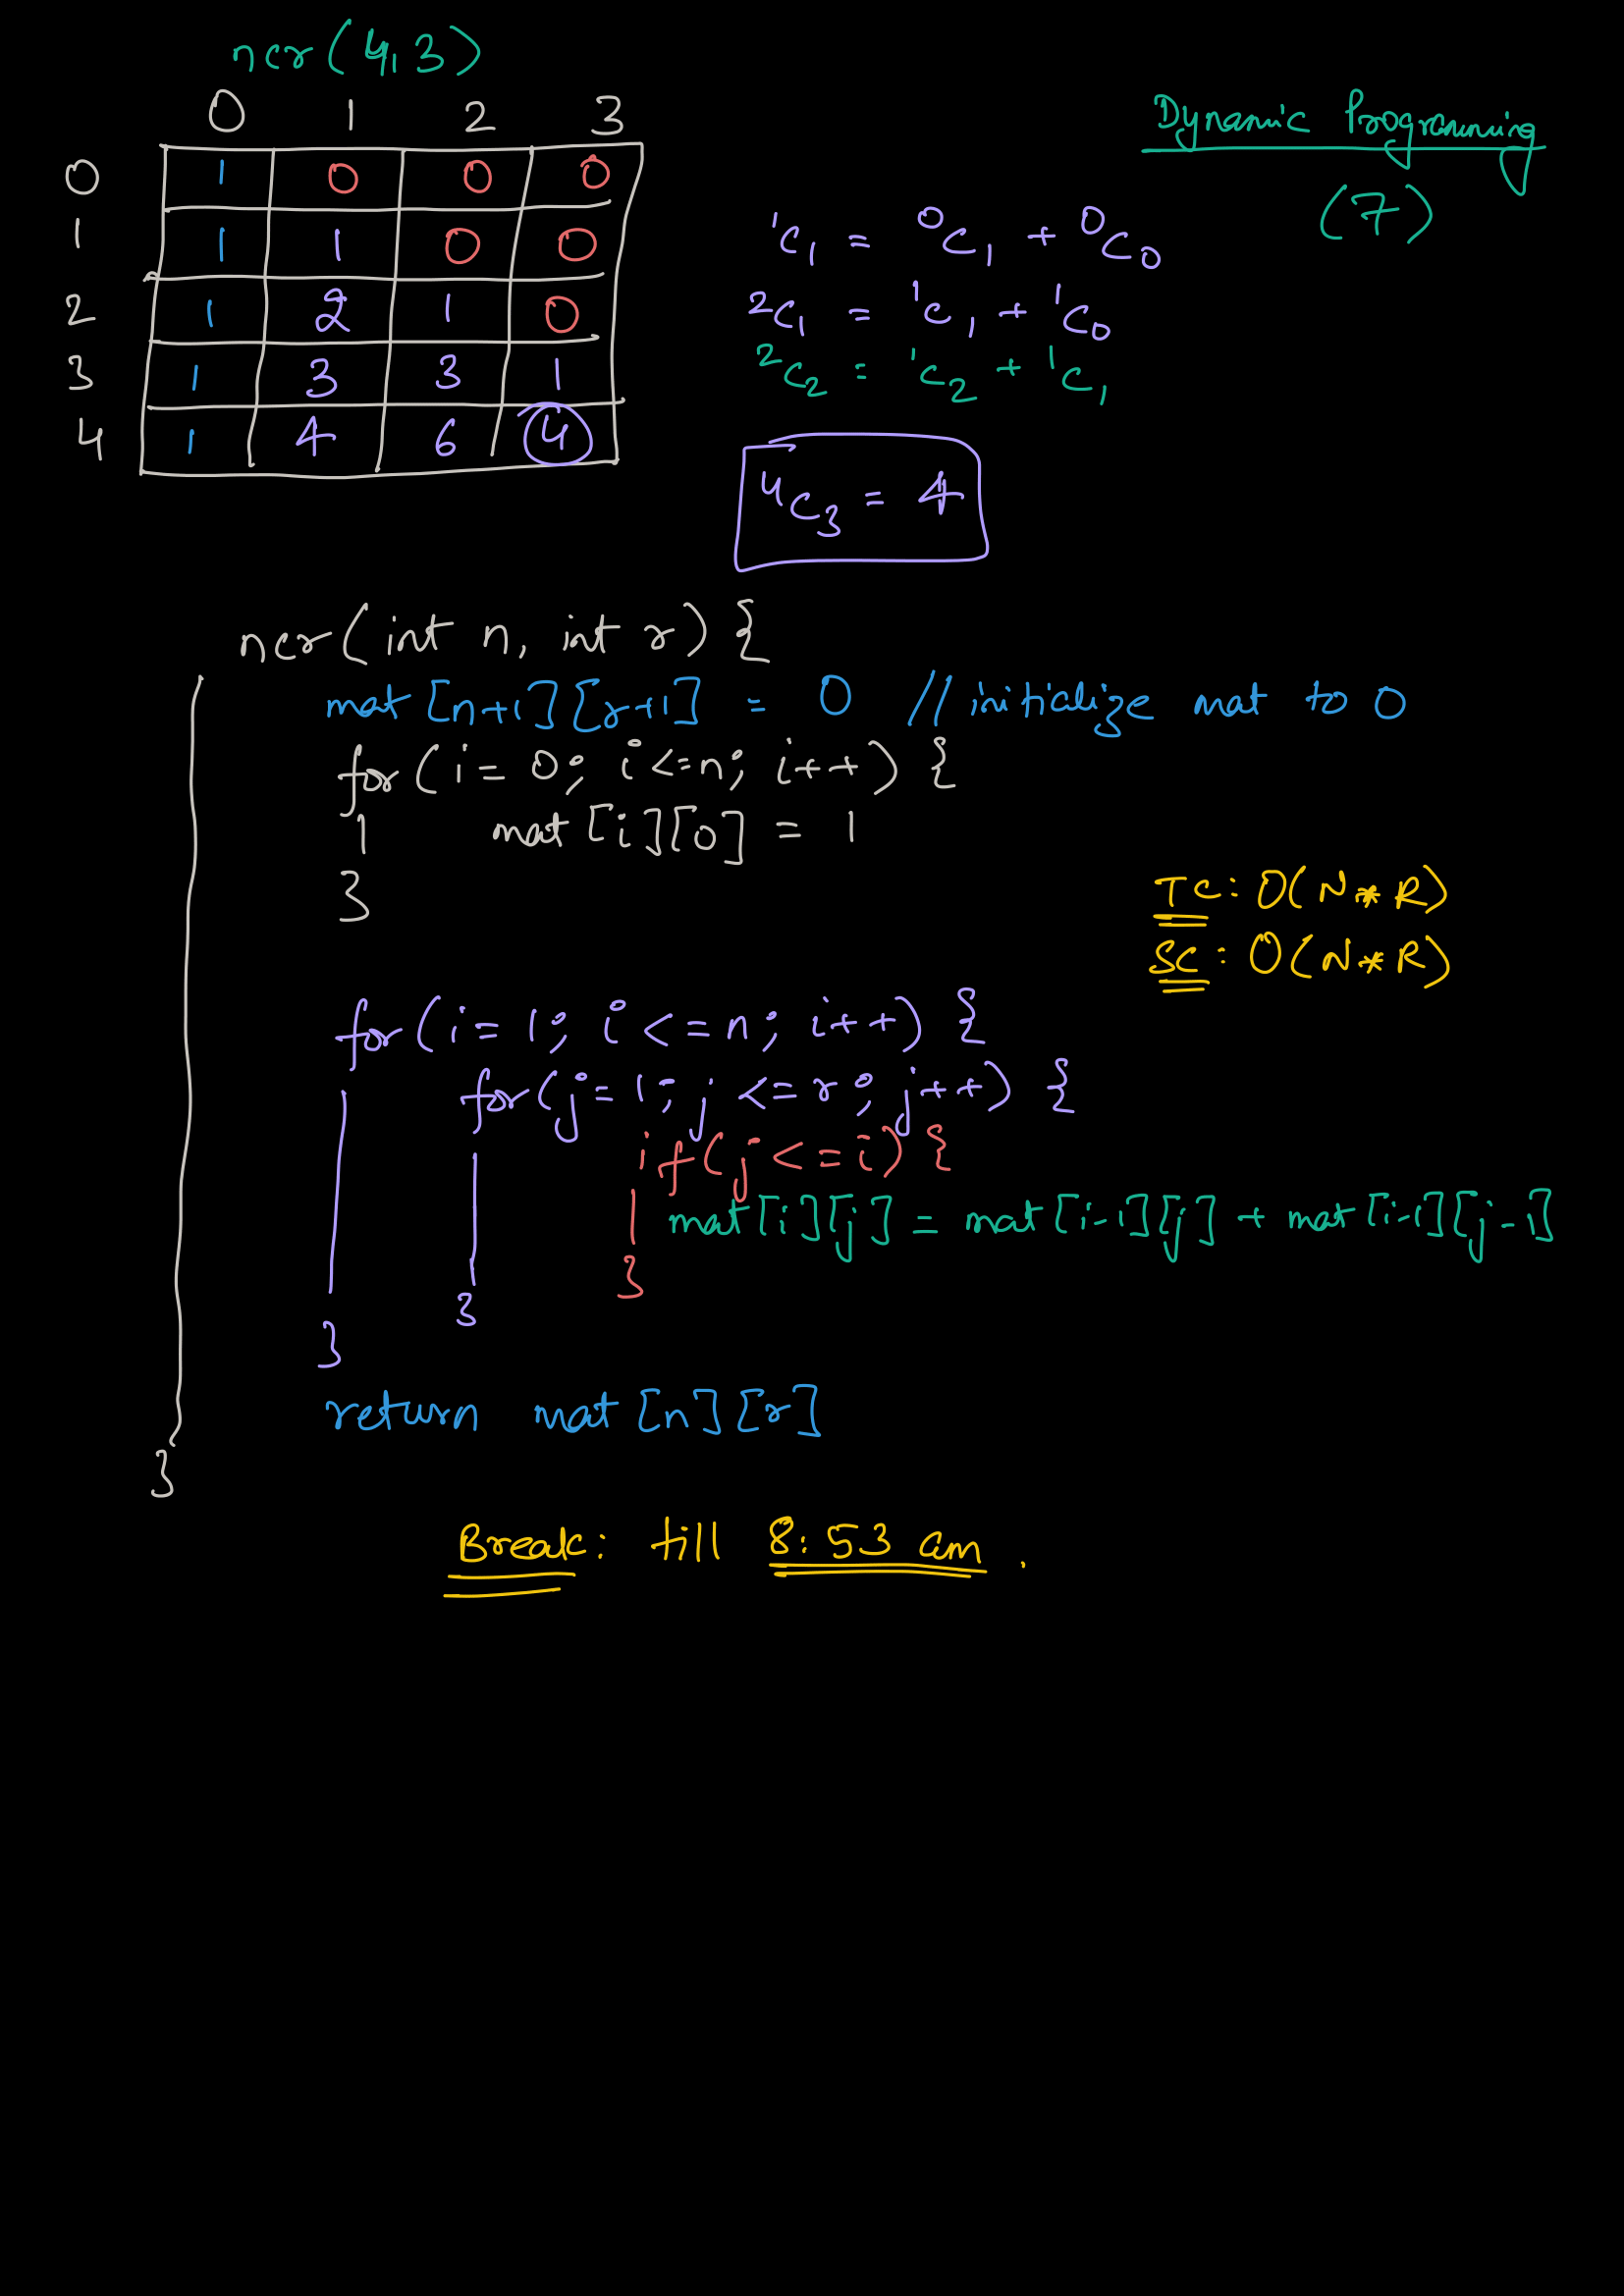 ncr(4,3)
Dynamic Programming
(7)
0 1 2 3
0 1 0 0 0
1 1 1 0 0
2 1 2 1 0
3 1 3 3 1
4 1 4 6 4
¹C₁ = ⁰C₁ + ⁰C₀
²C₁ = ¹C₁ + ¹C₀
²C₂ = ¹C₂ + ¹C₁
⁴C₃ = 4
ncr(int n, int r) {
mat[n+1][r+1] = 0 // initialize mat to 0
for(i = 0; i<=n; i++) {
mat[i][0] = 1
}
TC: O(N*R)
SC: O(N*R)
for(i = 1; i <= n; i++) {
for(j = 1; j <= r; j++) {
if(j <= i) {
mat[i][j] = mat[i-1][j] + mat[i-1][j-1]
}
}
}
return mat[n][r]
}
Break: till 8:53 am.